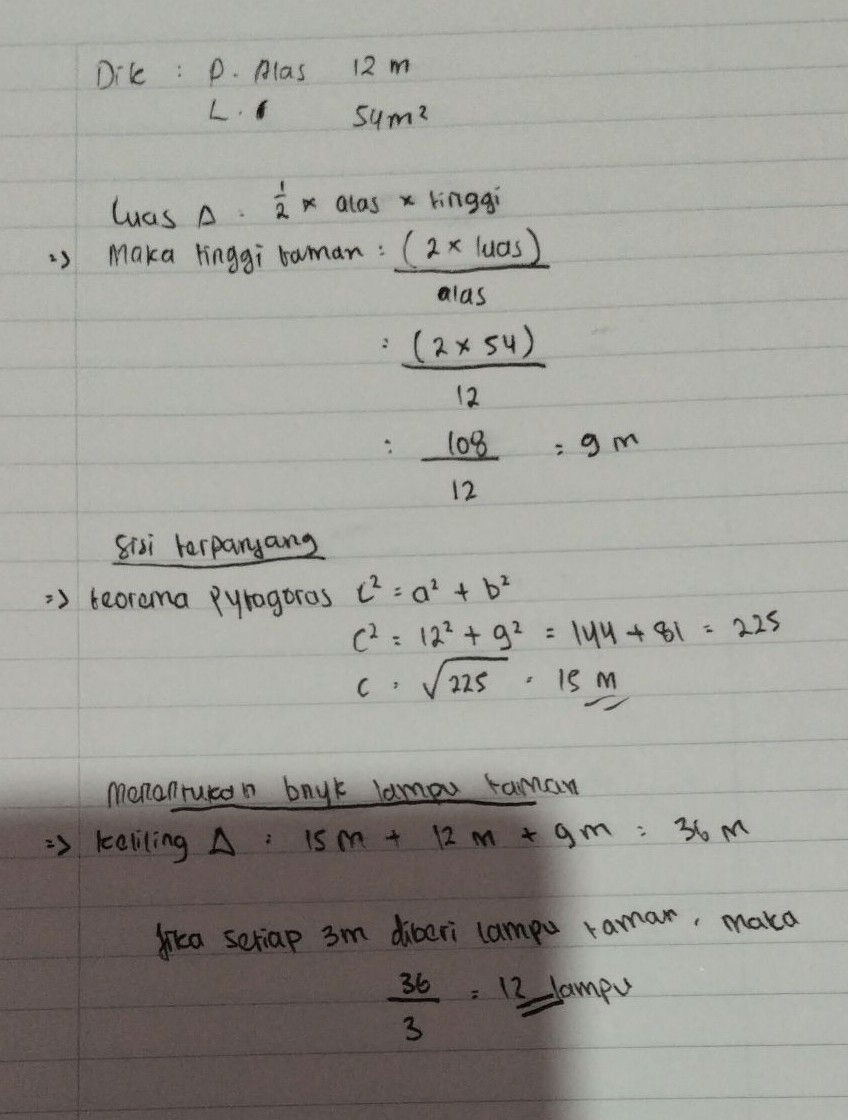 Dik : P. Alas 12 m
L. 54 m²
Luas Δ : 1/2 × alas × tinggi
=> Maka tinggi taman : (2 × luas)
alas
: (2 × 54)
12
: 108 = 9 m
12
Sisi terpanjang
=> teorema Pytagoras c² = a² + b²
c² = 12² + 9² = 144 + 81 = 225
c = √225 = 15 m
Menentukan bnyk lampu taman
=> keliling Δ : 15 m + 12 m + 9 m = 36 m
Jika setiap 3m diberi lampu taman, maka
36 = 12 lampu
3